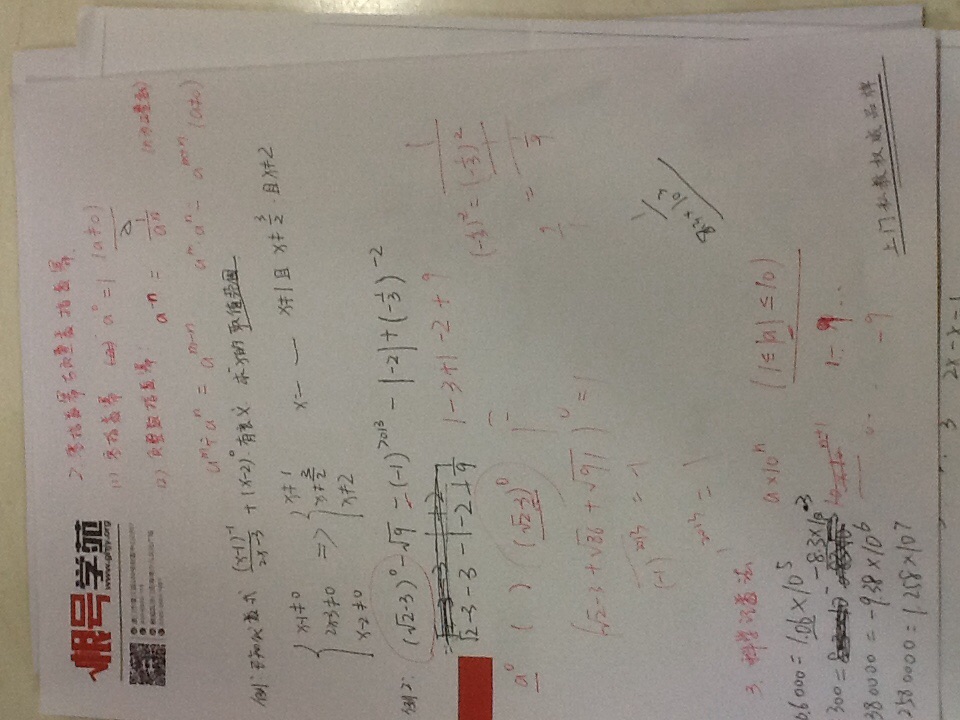 根号学苑
www.ghjy.org
2. 零指数幂与负整数指数幂
(1) 零指数幂 a⁰ = 1 (a≠0)
(2) 负整数指数幂: a⁻ⁿ = 1/aⁿ (n为正整数)
aᵐ÷aⁿ = aᵐ⁻ⁿ aᵐ·aⁿ = aᵐ⁺ⁿ (a≠0)
例1: 已知代数式 (x-1)⁻¹/2x-3 + (x-2)⁰ 有意义, 求x的取值范围
{ x-1≠0 2x-3≠0 x-2≠0 => { x≠1 x≠3/2 x≠2 x= — x≠1且 x≠3/2 . 且x≠2
例2: (√2-3)⁰ - √9 = (-1)²⁰¹³ - |-2| + (-1/3)⁻²
√2-3-3-1-2+1/9 1-3+1-2+9
(-1/3)⁻² = 1/(-1/3)²
= 1/(1/9)
9/1
a⁰ ( ) (√2-3)⁰ 1
(√2-3+√86+√91)⁰ = 1
(-1)²⁰¹³ = -1
1²⁰¹³ = 1
1/8.3×10³
3. 科学记数法 a×10ⁿ (1≤|a|≤10)
06000 = 1.06×10⁵
300 = -8.3×10⁻³
10ⁿ⁺¹
1- 9 ..
380000 = -9.38×10⁶
-9
2580000 = 1.258×10⁷
上门私教权威品牌
3 2x-x-1